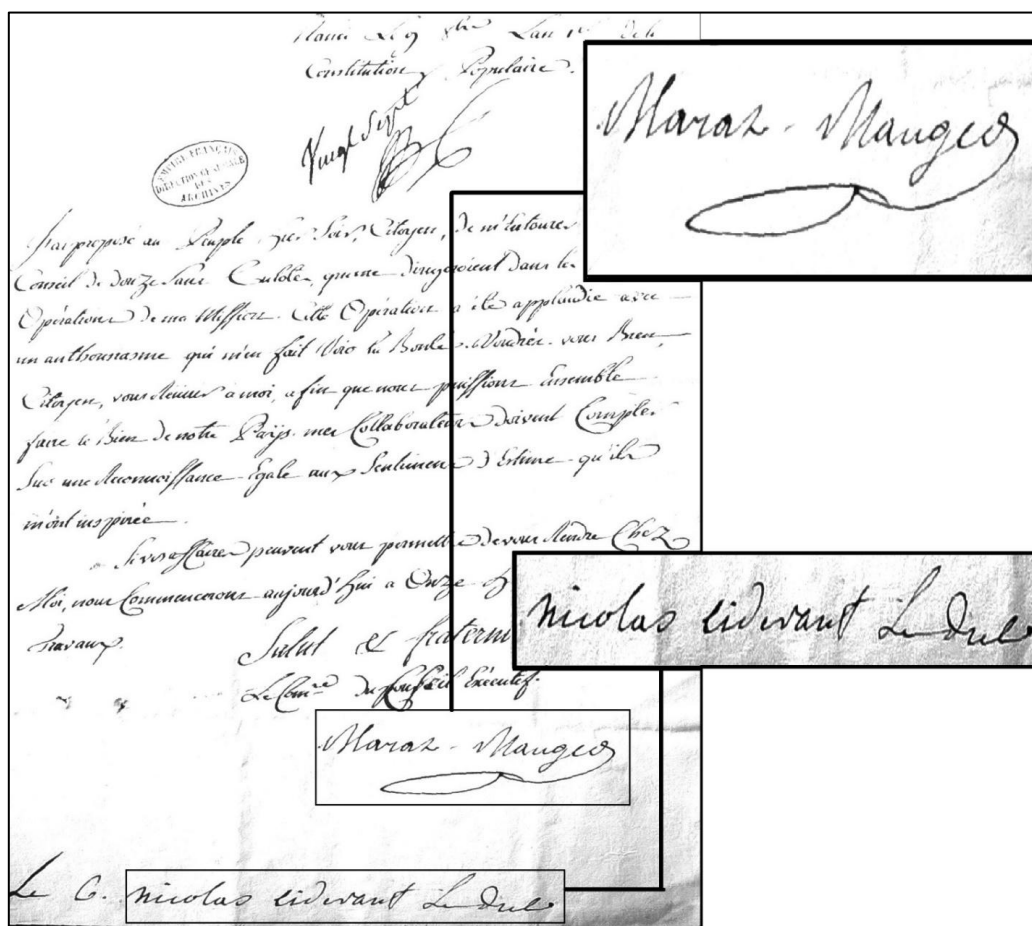 Nanci Le 9 8bre Lan 1er de la
Constitution Populaire.
Vingt Sept
EMPIRE FRANÇAIS
DIRECTION GENERALE
DES
ARCHIVES
J'ai proposé au Peuple hier Soir, Citoyen, de m'Entourer
Conseil de douze Sans Culotes, qui me dirigeroient dans les
Opérations de ma Mission. Cette Opération a été applaudie avec
un anthousiasme qui m'en fait Voir la Bonté. Voudriez vous Bien,
Citoyen, vous Réunir a moi, afin que nous puissions Ensemble
faire le Bien de notre Païs. mes Collaborateurs doivent Compter
Sur une Reconnoissance Egale aux Sentimens d'Estime qu'ils
m'ont inspirée.
Si vos affaires peuvent vous permettre de vous Rendre Chez
Moi, nous Commencerons aujourd'hui a Onze
travaux.
Salut et fraterni
Le Comre du Conseil Exécutif.
Marat - Mauger
Le C. nicolas cidevant Le duc
Marat - Mauger
nicolas cidevant Le duc